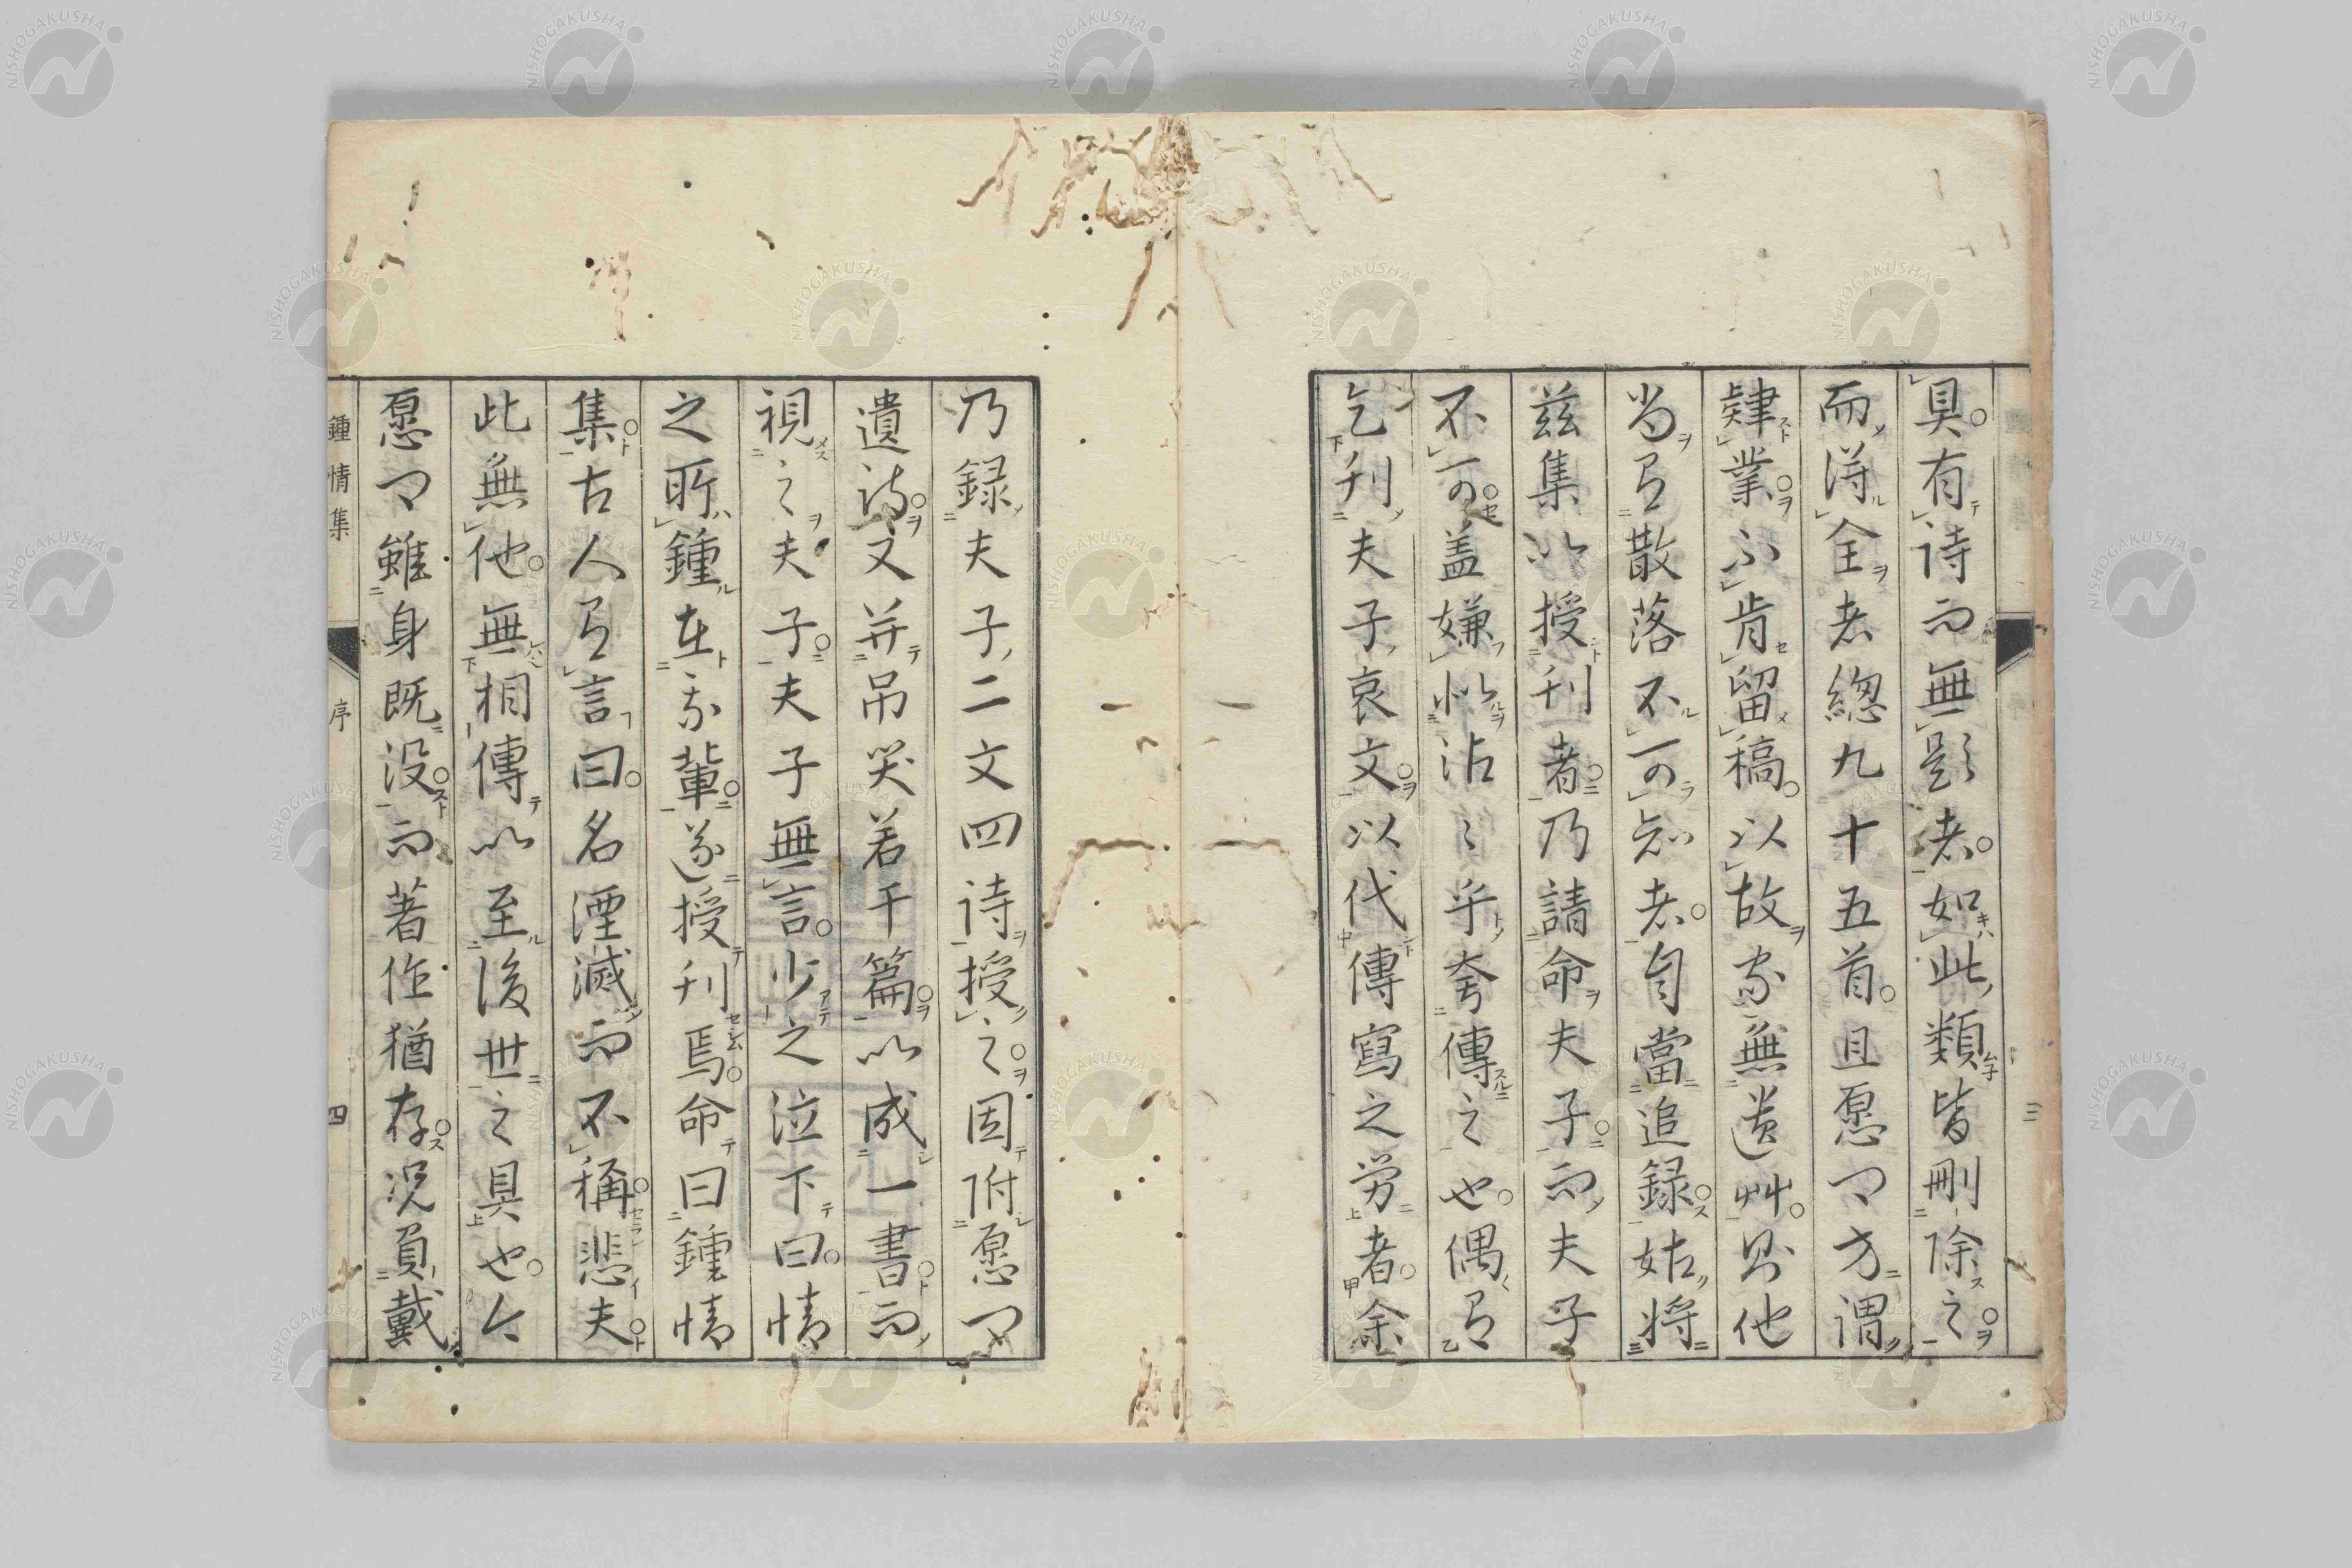 具有詩而無影者如此類皆刪除之
而得全者總九十五首且愿口方謂
肄業不肯留稿以故家無遺艸則他
当有散落不可知者自當追録姑將
茲集以授刊者乃請命夫子而夫子
不可盖嫌似沾〻乎夸傳之也偶有
乞刊夫子哀文以代傳寫之労者余
乃録夫子二文四詩授之因附愿口
遺詩文并吊哭若干篇以成一書而
視之夫子夫子無言少之泣下曰情
之所鍾在我輩遂授刊焉命曰鍾情
集古人有言曰名湮滅而不稱悲夫
此無他無相傳以至後世之具也今
愿口雖身既没而著作猶存況負戴
鍾情集
序
四
三
NISHOGAKUSHA